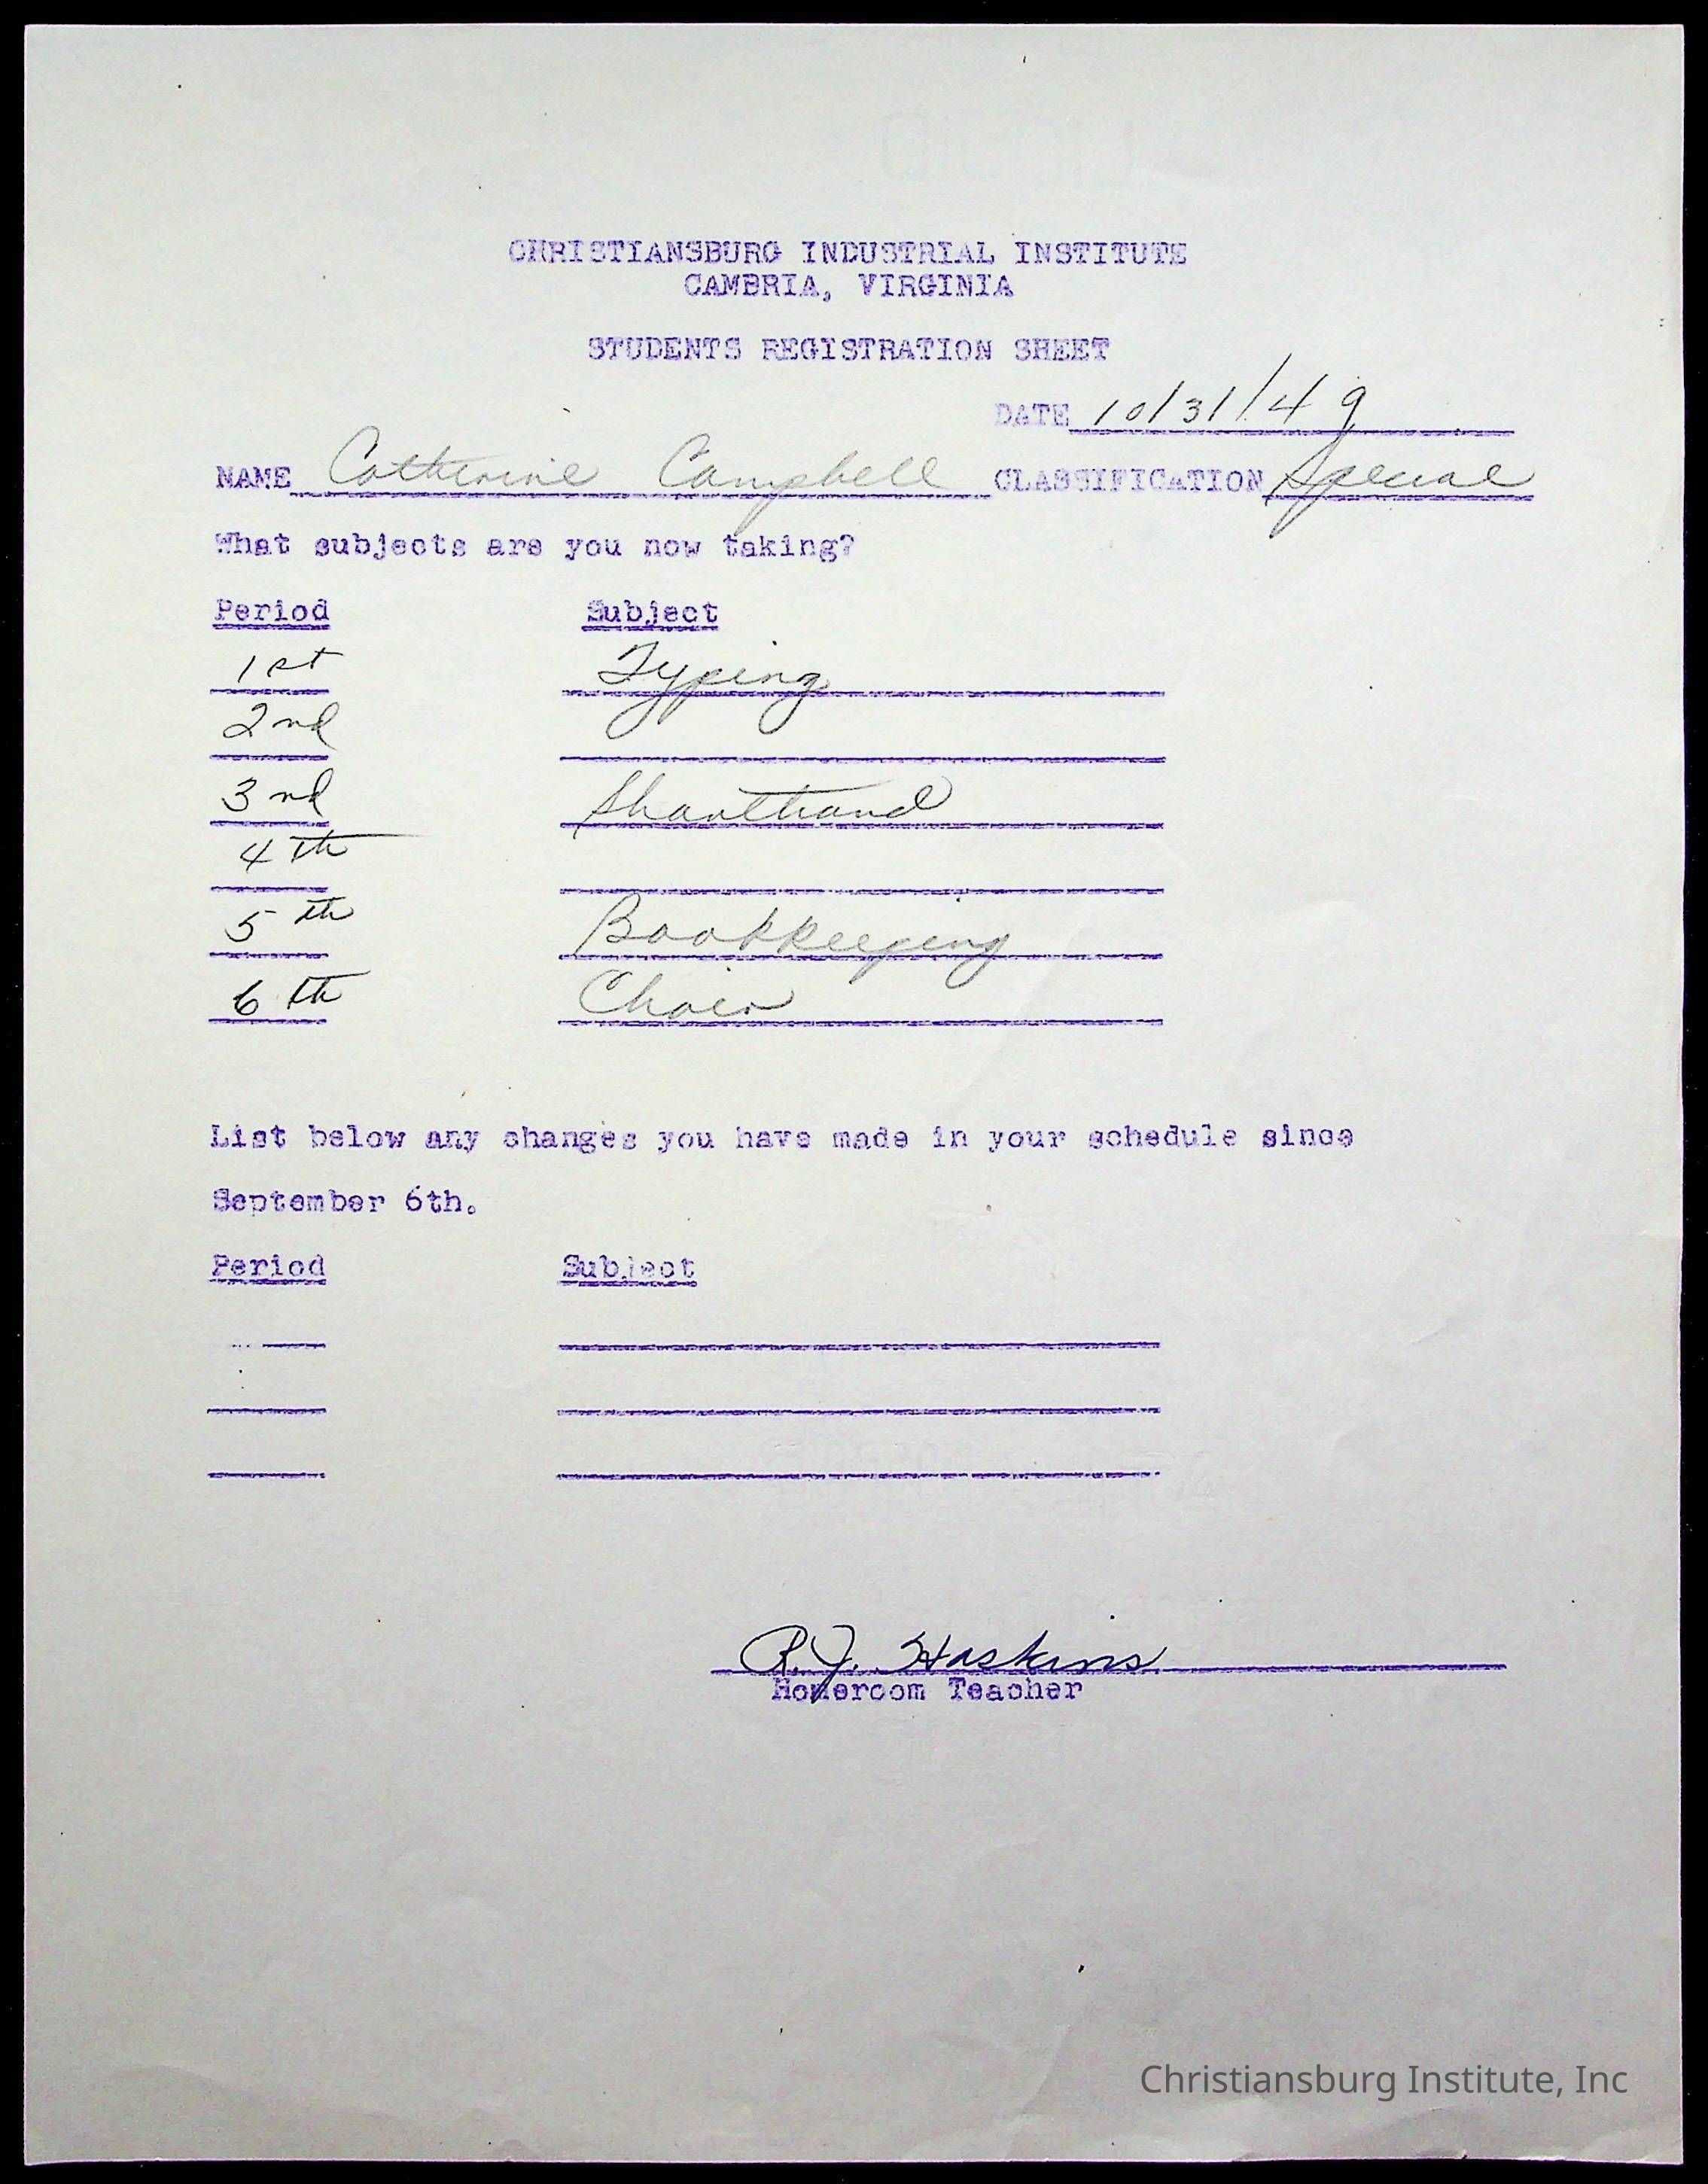 CHRISTIANSBURG INDUSTRIAL INSTITUTE
CAMBRIA, VIRGINIA
STUDENTS REGISTRATION SHEET
DATE 10/31/49
NAME Catherine Campbell CLASSIFICATION Special
What subjects are you now taking?
Period Subject
1st Typing
2nd
3nd Shorthand
4th
5th Bookkeeping
6th Choir
List below any changes you have made in your schedule since
September 6th.
Period Subject
R.J. Haskins
Homeroom Teacher
Christiansburg Institute, Inc